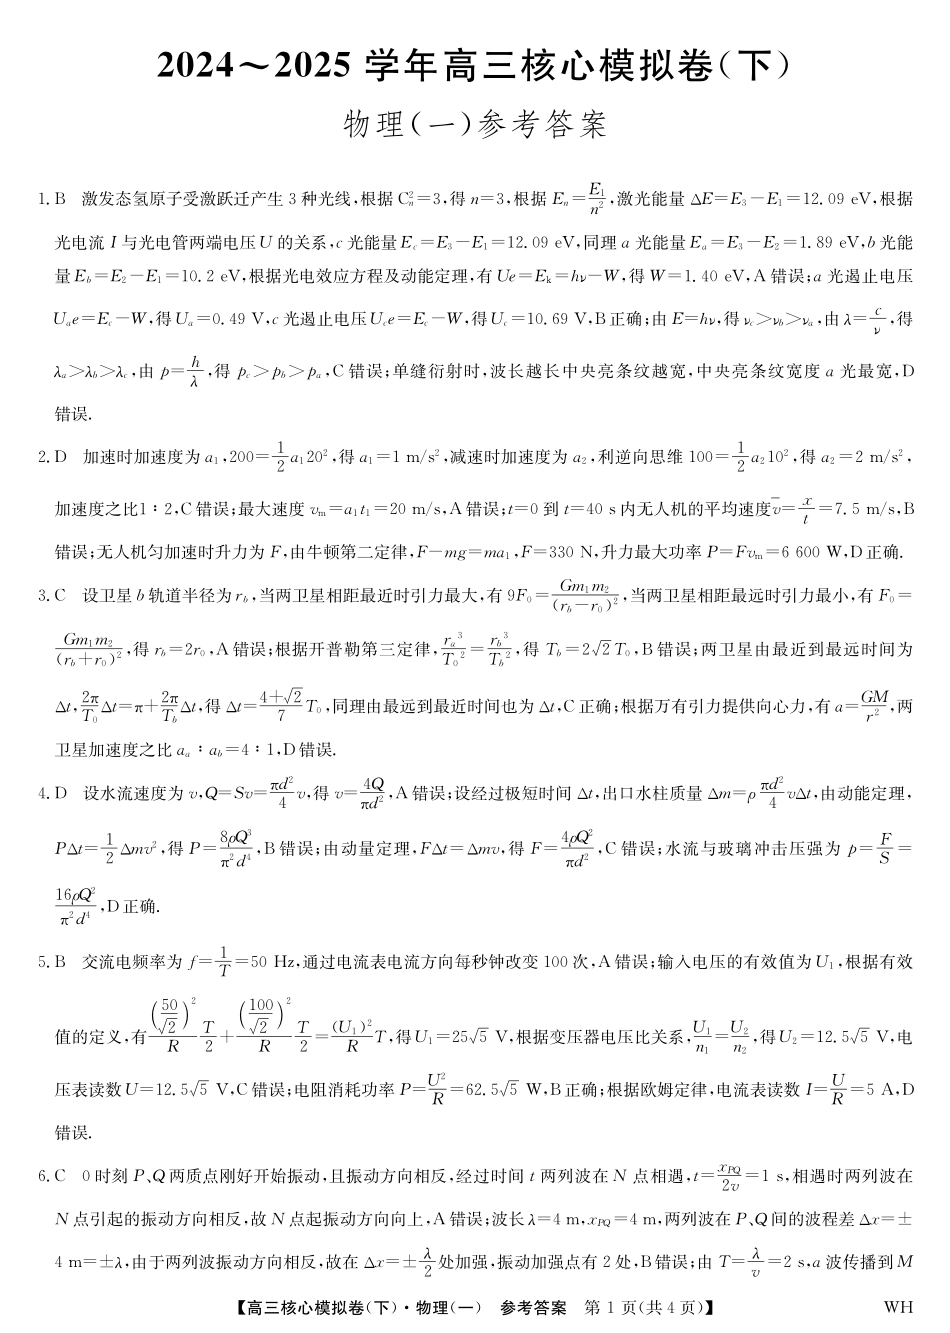 2024～2025 学年高三核心模拟卷(下)
物理(一)参考答案
1. B　激发态氢原子受激跃迁产生 3 种光线,根据 C²ₙ=3,得 n=3,根据 Eₙ=E₁/n²,激光能量 ΔE=E₃−E₁=12.09 eV,根据
光电流 I 与光电管两端电压 U 的关系,c 光能量 E_c=E₃−E₁=12.09 eV,同理 a 光能量 Eₐ=E₃−E₂=1.89 eV,b 光能
量 E_b=E₂−E₁=10.2 eV,根据光电效应方程及动能定理,有 Ue=Eₖ=hν−W,得 W=1.40 eV,A 错误;a 光遏止电压
Uₐe=E_c−W,得 Uₐ=0.49 V,c 光遏止电压 U_ce=E_c−W,得 U_c=10.69 V,B 正确;由 E=hν,得 ν_c>ν_b>νₐ,由 λ=c/ν,得
λₐ>λ_b>λ_c,由 p=h/λ,得 p_c>p_b>pₐ,C 错误;单缝衍射时,波长越长中央亮条纹越宽,中央亮条纹宽度 a 光最宽,D
错误.
2. D　加速时加速度为 a₁,200=1/2 a₁20²,得 a₁=1 m/s²,减速时加速度为 a₂,利逆向思维 100=1/2 a₂10²,得 a₂=2 m/s²,
加速度之比1∶2,C 错误;最大速度 vₘ=a₁t₁=20 m/s,A 错误;t=0 到 t=40 s 内无人机的平均速度v̄=x/t=7.5 m/s,B
错误;无人机匀加速时升力为 F,由牛顿第二定律,F−mg=ma₁,F=330 N,升力最大功率 P=Fvₘ=6 600 W,D 正确.
3. C　设卫星 b 轨道半径为 r_b,当两卫星相距最近时引力最大,有 9F₀=Gm₁m₂/(r_b−r₀)²,当两卫星相距最远时引力最小,有 F₀=
Gm₁m₂/(r_b+r₀)²,得 r_b=2r₀,A 错误;根据开普勒第三定律,rₐ³/T₀²=r_b³/T_b²,得 T_b=2√2T₀,B 错误;两卫星由最近到最远时间为
Δt,2π/T₀ Δt=π+2π/T_b Δt,得 Δt=(4+√2)/7 T₀,同理由最远到最近时间也为 Δt,C 正确;根据万有引力提供向心力,有 a=GM/r²,两
卫星加速度之比 aₐ∶a_b=4∶1,D 错误.
4. D　设水流速度为 v,Q=Sv=πd²/4 v,得 v=4Q/πd²,A 错误;设经过极短时间 Δt,出口水柱质量 Δm=ρ πd²/4 vΔt,由动能定理,
PΔt=1/2 Δmv²,得 P=8ρQ³/π²d⁴,B 错误;由动量定理,FΔt=Δmv,得 F=4ρQ²/πd²,C 错误;水流与玻璃冲击压强为 p=F/S=
16ρQ²/π²d⁴,D 正确.
5. B　交流电频率为 f=1/T=50 Hz,通过电流表电流方向每秒钟改变 100 次,A 错误;输入电压的有效值为 U₁,根据有效
值的定义,有 (50/√2)²/R T/2+(100/√2)²/R T/2=(U₁)²/R T,得 U₁=25√5 V,根据变压器电压比关系,U₁/n₁=U₂/n₂,得 U₂=12.5√5 V,电
压表读数 U=12.5√5 V,C 错误;电阻消耗功率 P=U²/R=62.5√5 W,B 正确;根据欧姆定律,电流表读数 I=U/R=5 A,D
错误.
6. C　0 时刻 P、Q 两质点刚好开始振动,且振动方向相反,经过时间 t 两列波在 N 点相遇,t=x_PQ/2v=1 s,相遇时两列波在
N 点引起的振动方向相反,故 N 点起振动方向向上,A 错误;波长 λ=4 m,x_PQ=4 m,两列波在 P、Q 间的波程差 Δx=±
4 m=±λ,由于两列波振动方向相反,故在 Δx=±λ/2 处加强,振动加强点有 2 处,B 错误;由 T=λ/v=2 s,a 波传播到 M
【高三核心模拟卷(下)·物理(一)　参考答案　第 1 页(共 4 页)】　WH